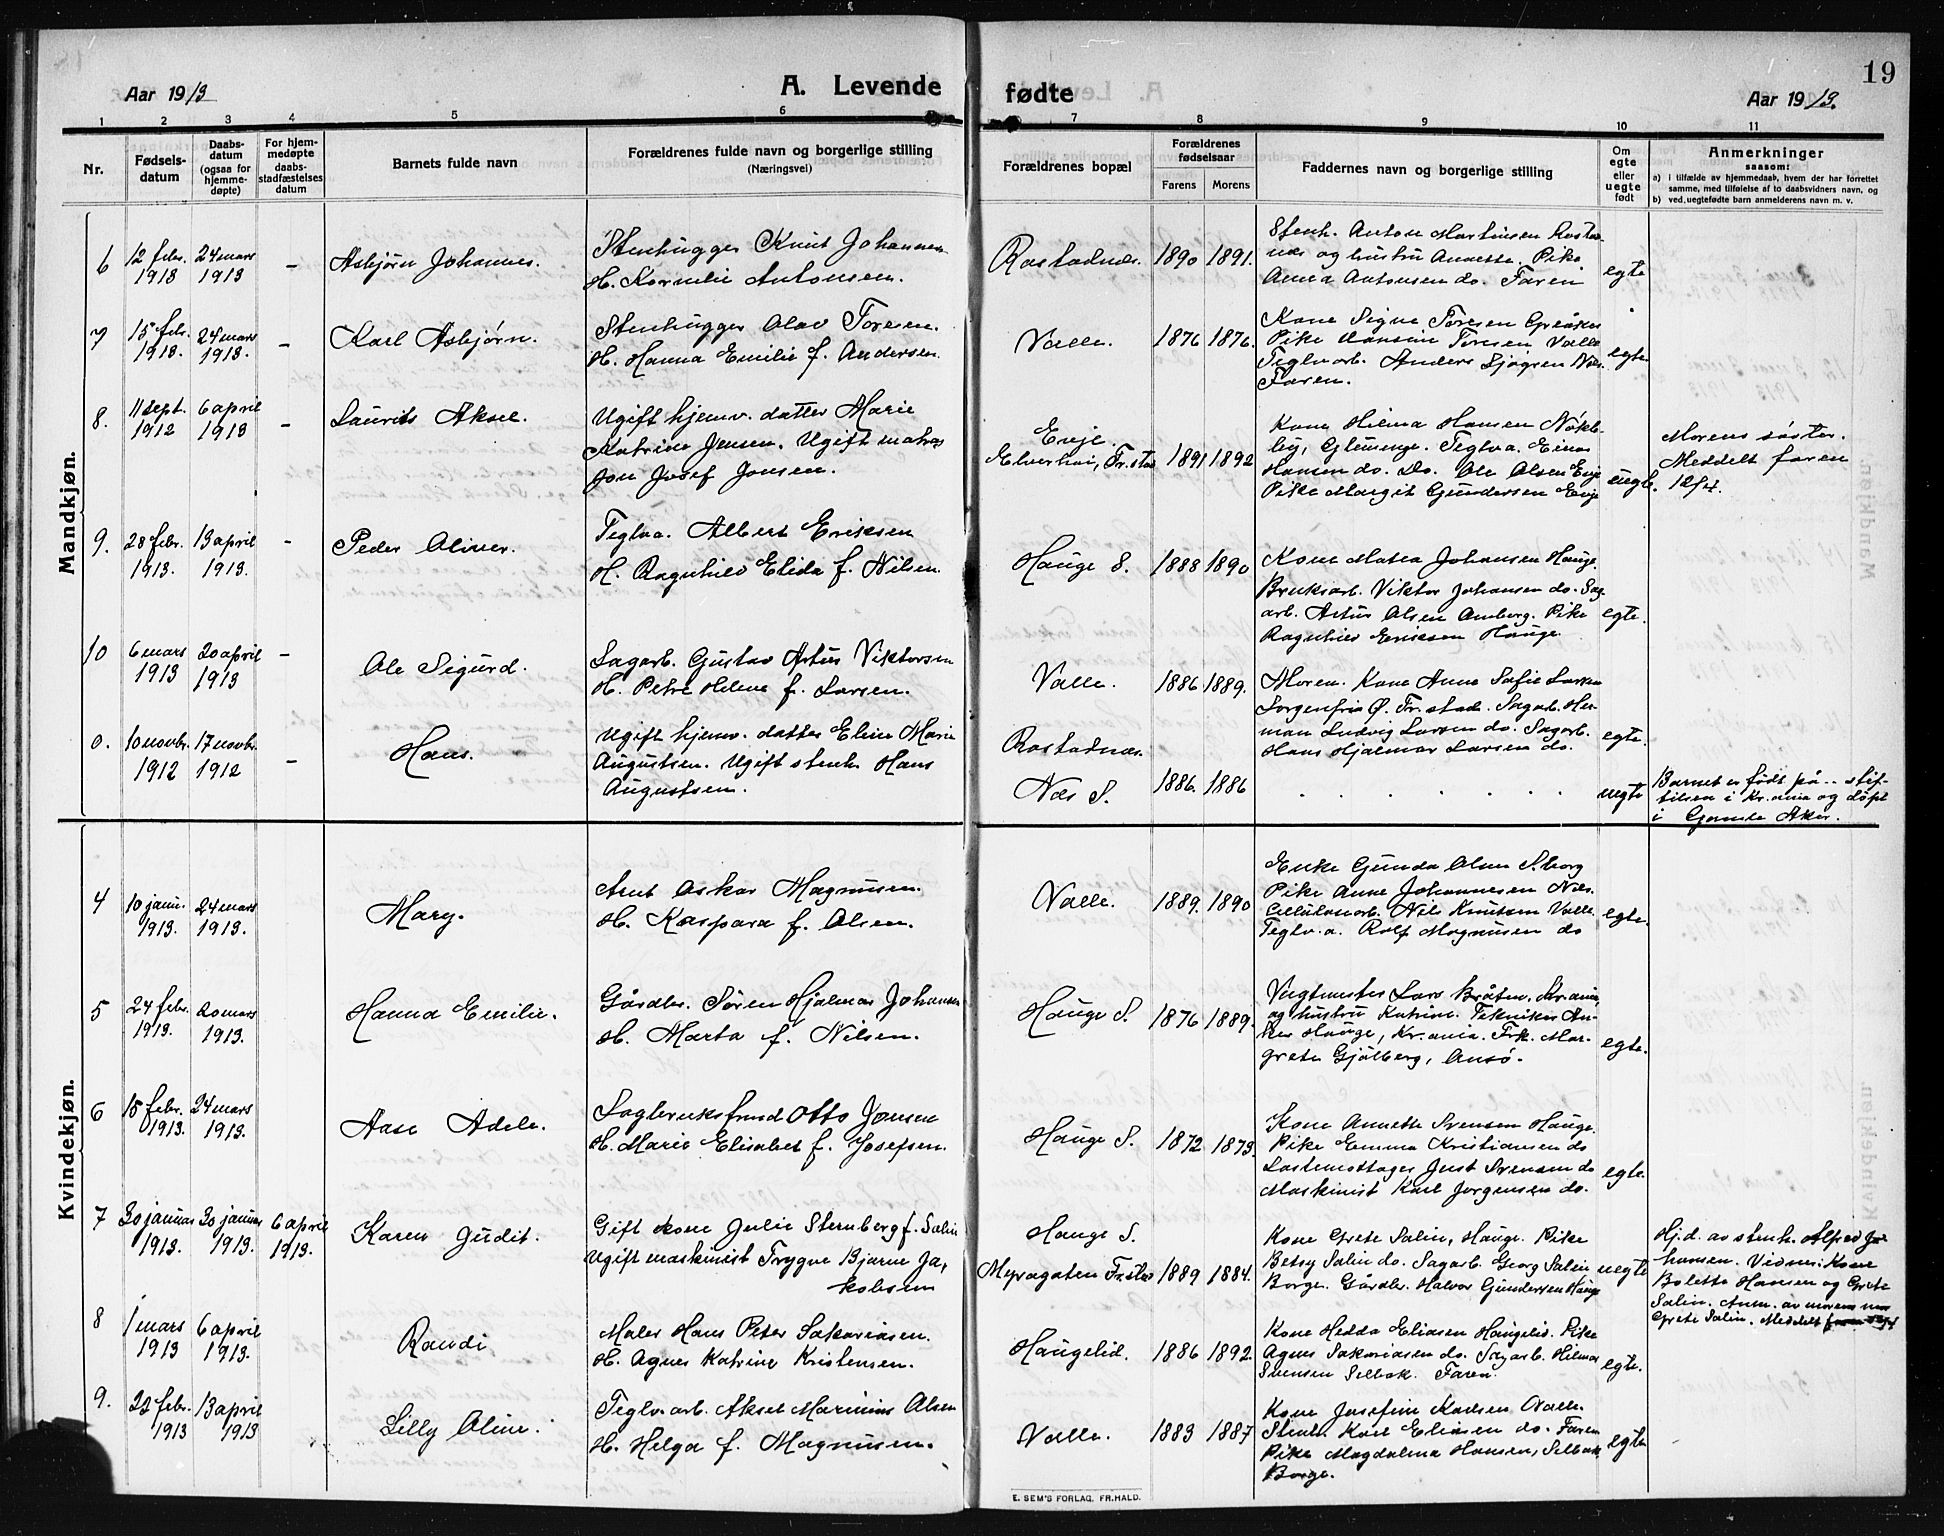 19
Aar 1913
A. Levende
fødte
Aar 1913.
1 2 3 4 5 6 7 8 9 10 11
Nr.
Fødsels-
datum
Daabs-
datum
(ogsaa for
hjemme-
døpte)
For hjem-
medøpte
daabs-
stadfæstelses
datum
Barnets fulde navn
Forældrenes fulde navn og borgerlige stilling
(Næringsvei)
Forældrenes bopæl
Forældrenes
fødselsaar
Farens Morens
Faddernes navn og borgerlige stilling
Om
egte
eller
uegte
født
Anmerkninger
saasom:
a) i tilfælde av hjemmedaab, hvem der har forrettet
samme, med tilføielse af to daabsvidners navn, og
b) ved uegtefødte barn anmelderens navn m. v.
Mandkjøn.
6 12 febr. 1913 24 mars 1913 – Asbjørn Johannes.
Stenhugger Knut Johannesen
H. Kornelie Antonsen.
Rostadnæs. 1890 1891.
Stenh. Anton Martinsen Rostad-
næs og hustru Annette. Pike
Anna Antonsen do. Faren
egte
7 15 febr. 1913. 24 mars 1913. – Karl Asbjørn.
Stenhugger Olav Toresen.
H. Hanna Emilie f. Andersen.
Valle. 1876 1876.
Kone Signe Toresen Greåker
Pike Hansine Toresen Valle
Teglv.arb. Anders Sjøgren Næs.
Faren.
egte.
8. 11 sept. 1912 6 april 1913 – Laurits Aksel.
Ugift hjemv. datter Marie
Katrine Jensen. Ugift matros
Jon Josef Jonsen.
Evje.
Elverhøi, Fr.stad 1891 1892
Kone Hilma Hansen Nøkle-
by, Glemmge. Teglv.a. Einar
Hansen do. Do. Ole Olsen Evje
Pike Margit Gundersen Evje
uegte.
Morens søster.
Meddelt faren
12/4.
9. 28 febr. 1913. 13 april 1913. – Peder Oliver.
Teglv.a. Albert Eriksen
H. Ragnhild Elida f. Nilsen.
Hauge S. 1888 1890
Kone Matea Johansen Hauge.
Bruksarb. Viktor Johansen do. Sag-
arb. Artur Olsen Amberg. Pike
Ragnhild Eriksen Hauge.
egte.
10 6 mars 1913 20 april 1913 – Ole Sigurd.
Sagarb. Gustav Artur Viktorsen
H. Petra Helene f. Larsen.
Valle. 1886 1889.
Moren. Kone Anna Sofie Larsen
Sorgenfri Ø. Fr.stad. Sagarb. Her-
man Ludvig Larsen do. Sagarb.
Hans Hjalmar Larsen do.
egte.
0. 10 novbr. 1912 17 novbr. 1912 – Hans.
Ugift hjemv. datter Eline Marie
Augustsen. Ugift stenh. Hans
Augustsen.
Rostadnæs.
Næs S. 1886. 1886
uegte
Barnet er født på .. stif-
telsen i Kr.ania og døpt
i Gamle Aker.
Kvindekjøn.
4 10 janu. 1913. 24 mars 1913. Mary.
Arut Oskar Magnusen.
H. Kaspara f. Olsen.
Valle. 1889. 1890
Enke Gunda Olsen S.borg
Pike Anne Johannesen Næs.
Cellulosearb. Nils Knutsen Valle
Teglv.a. Rolf Magnusen do
egte.
5 24 febr. 1913. 20 mars 1913. Hanna Emilie.
Gårdbr. Søren Hjalmar Johansen
H. Marta f. Nilsen.
Hauge S. 1876 1889.
Vegtmester Lars Bråten, Kr.ania,
og hustru Katrine. Tekniker An-
ker Hauge, Kr.ania. Frk. Mar-
grete Gjølberg, Onsø.
egte.
6 15 febr. 1913. 24 mars 1913. Aase Adele.
Sagbruksfmd Otto Jonsen
H. Marie Elisabet f. Josefsen.
Hauge S. 1872 1873.
Kone Annette Svensen Hauge.
Pike Emma Kristiansen do
Lastemottager Just Svensen do
Maskinist Karl Jørgensen do.
egte.
7 30 januar 1913. 30 januar 1913. 6 april 1913. Karen Judit.
Gift kone Julie Sternberg f. Salin
Ugift maskinist Trygve Bjarne Ja-
kobsen
Hauge S.
Myragaten Fr.stad 1889 1884.
Kone Grete Salin, Hauge. Pike
Betsy Salin do. Sagarb. Georg Salin
Borge. Gårdbr. Halvor Gundersen Hauge
uegte
Hj.d. av stenh. Alfred Jo-
hansen. Vidner: Kone
Bolette Hansen og Grete
Salin. Anm. av morens mor
Grete Salin. Meddelt
8 1 mars 1913 6 april 1913. Randi
Maler Hans Peter Sakariasen.
H. Agnes Katrine Kristensen.
Haugelid. 1886 1892.
Kone Hedda Eliasen Haugelid. Pike
Agnes Sakariasen do. Sagarb. Hilmar
Svensen Selbak. Faren.
egte.
9. 22 febr. 1913 13 april 1913 Lilly Oline.
Teglv.arb. Aksel Marinius Olsen
H. Helga f. Magnusen.
Valle. 1883 1887
Kone Josefine Karlsen Valle.
Stenh. Karl Eliasen do. Faren
Pike Magdalena Hansen, Selbak,
Borge.
egte
E. SEM'S FORLAG, FR.HALD.